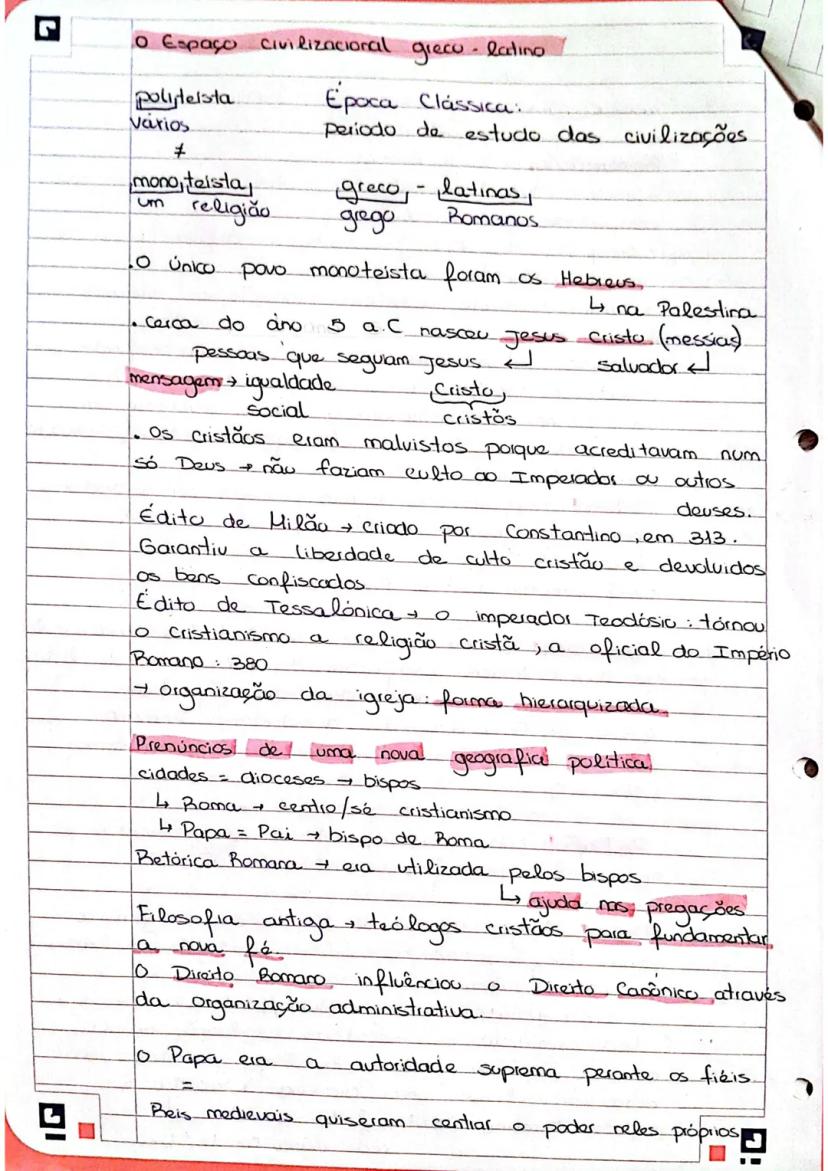 O Espaço civilizacional greco-latino
politeista Época Clássica:
vários periodo de estudo das civilizações
≠
mono,teista, greco, - latinas,
um religião grego Romanos
.O único povo monoteista foram os Hebreus.
↳ na Palestina
. cerca do ano 5 a.C nasceu Jesus Cristo (messias)
pessoas que seguiam Jesus ↵ salvador ↵
mensagem → igualdade Cristo,
social cristãos
. Os cristãos eram malvistos porque acreditavam num
só Deus → não faziam culto ao Imperador ou outros
deuses.
Édito de Milão → criado por Constantino, em 313.
Garantiu a liberdade de culto cristão e devolvidos
os bens confiscados
Édito de Tessalónica → o imperador Teodósio: tornou
o cristianismo a religião cristã, a oficial do Império
Romano: 380
→ organização da igreja: forma hierarquizada.
Prenúncios de uma nova geografia politica
cidades = dioceses → bispos
↳ Roma → centro/sé cristianismo
↳ Papa = Pai → bispo de Roma
Retórica Romana → era utilizada pelos bispos
↳ ajuda nas pregações
Filosofia antiga → teólogos cristãos para fundamentar
a nova fé.
O Direito Romano influênciou o Direito Canônico através
da organização administrativa.
O Papa era a autoridade suprema perante os fiéis
=
Reis medievais quiseram centrar o poder neles próprios